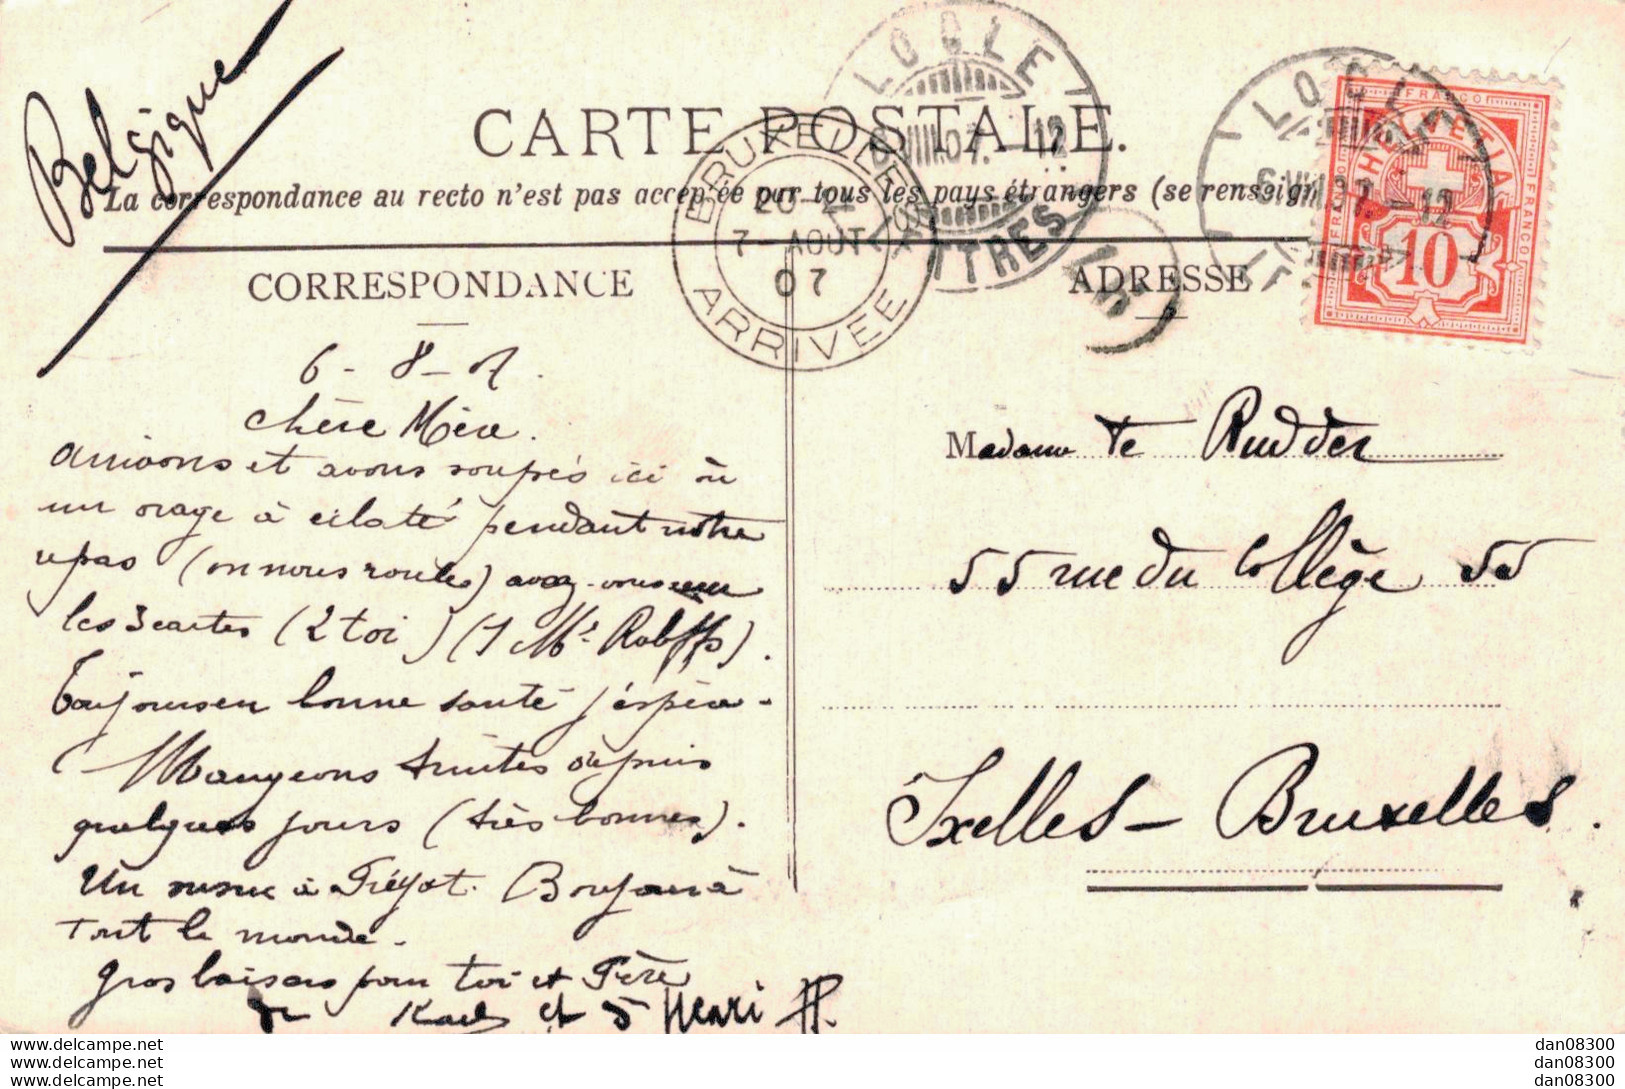 Belgique
CARTE POSTALE.
La correspondance au recto n'est pas acceptée par tous les pays étrangers (se renseign
LOCLE
6.VIII.07.-12
LETTRES
BRUXELLES
7-AOUT
07
ARRIVEE
LOCLE
6.VIII.07.-12
FRANCO
HELVETIA
FRANCO
FRANCO
10
CORRESPONDANCE
ADRESSE
6-8-07.
Chère Mère.
Arrivons et avons soupés ici où
un orage à éclaté pendant notre
repas (on nous roules) avez-vous
les 3 cartes (2 toi) (1 Mr
Toujours en bonne santé j'espère.
Mangeons truites depuis
quelques jours (très bonnes).
Un à Bonjour à
tout le monde.
Gros baisers pour toi et Père
de Karl et Henri
Madame De Rudder
55 rue du Collège 55
Ixelles - Bruxelles.
www.delcampe.net
www.delcampe.net
www.delcampe.net
dan08300
dan08300
dan08300